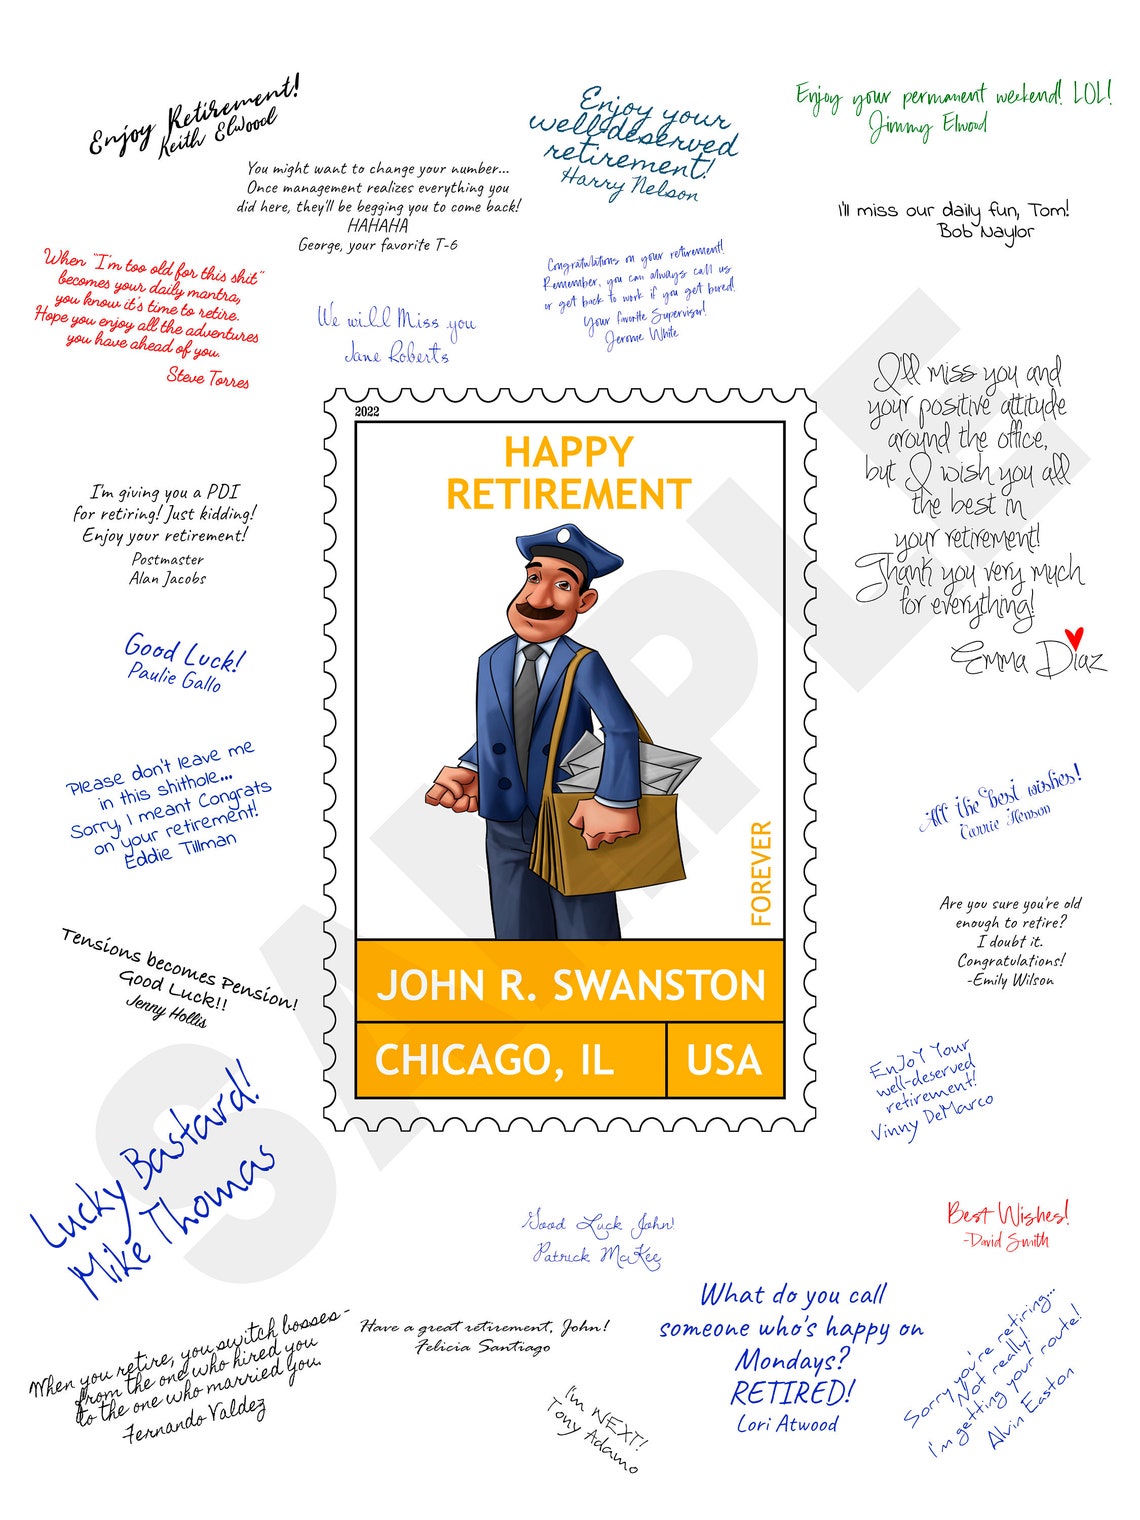 Enjoy Retirement!
Keith Elwood
Enjoy your
well-deserved
retirement!
Harry Nelson
Enjoy your permanent weekend! LOL!
Jimmy Elwood
You might want to change your number...
Once management realizes everything you
did here, they'll be begging you to come back!
HAHAHA
George, your favorite T-6
I'll miss our daily fun, Tom!
Bob Naylor
When "I'm too old for this shit"
becomes your daily mantra,
you know it's time to retire.
Hope you enjoy all the adventures
you have ahead of you.
Steve Torres
We will Miss you
Jane Roberts
Congratulations on your retirement!
Remember, you can always call us
or get back to work if you get bored!
Your favorite Supervisor!
Jerome White
I'll miss you and
your positive attitude
around the office,
but I wish you all
the best in
your retirement!
Thank you very much
for everything!
Emma Diaz
2022
HAPPY
RETIREMENT
FOREVER
JOHN R. SWANSTON
CHICAGO, IL
USA
I'm giving you a PDI
for retiring! Just kidding!
Enjoy your retirement!
Postmaster
Alan Jacobs
Good Luck!
Paulie Gallo
Please don't leave me
in this shithole...
Sorry, I meant Congrats
on your retirement!
Eddie Tillman
All the best wishes!
Carrie Henson
Are you sure you're old
enough to retire?
I doubt it.
Congratulations!
-Emily Wilson
Tensions becomes Pension!
Good Luck!!
Jenny Hollis
EnJoY Your
well-deserved
retirement!
Vinny DeMarco
Lucky Bastard!
Mike Thomas
Good Luck John!
Patrick McKee
Best Wishes!
-David Smith
When you retire, you switch bosses -
from the one who hired you
to the one who married you.
Fernando Valdez
Have a great retirement, John!
Felicia Santiago
What do you call
someone who's happy on
Mondays?
RETIRED!
Lori Atwood
I'm NEXT!
Tony Adamo
Sorry you're retiring...
Not really!
I'm getting your route!
Alvin Easton
SAMPLE